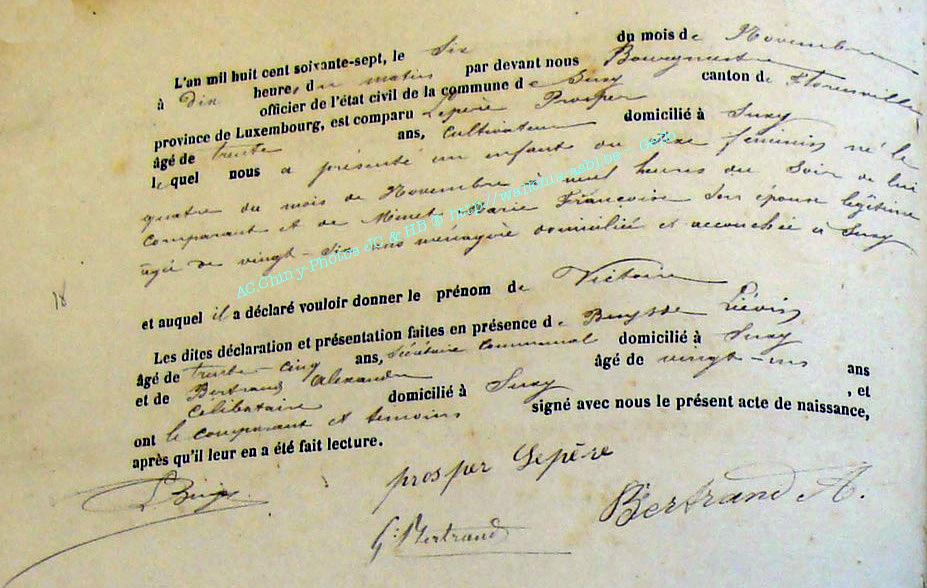 L'an mil huit cent soixante-sept, le Six du mois de Novembre
à Dix heures, du matin par devant nous Bourgmestre
officier de l'état civil de la commune de Suxy canton de Florenville
province de Luxembourg, est comparu Lepère Prosper
âgé de trente ans, Cultivateur domicilié à Suxy
lequel nous a présenté un enfant du sexe féminin né le
quatre du mois de Novembre à neuf heures du Soir de lui
comparant et de Minet Marie Françoise Son épouse légitime
agée de vingt-six ans ménagère domiciliée et accouchée à Suxy
AC.Chiny-Photos JC & HB © http//wallonia-asbl.be
18
et auquel il a déclaré vouloir donner le prénom de Victoire
Les dites déclaration et présentation faites en présence de Buysse Liévin
âgé de trente-cinq ans, Secrétaire Communal domicilié à Suxy
et de Bertrand Alexandre âgé de vingt-un ans
Célibataire domicilié à Suxy , et
ont le comparant et témoins signé avec nous le présent acte de naissance,
après qu'il leur en a été fait lecture.
prosper Lepère
Bertrand A.
G. Bertrand